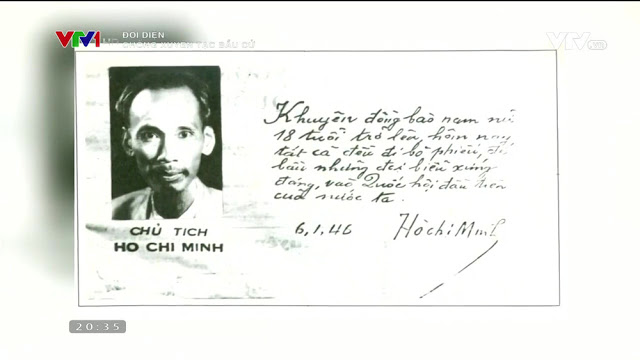 VTV1 ĐỐI DIỆN
CHỐNG XUYÊN TẠC BẦU CỬ
VTV.vn
Khuyên đồng bào nam nữ
18 tuổi trở lên, hôm nay
tất cả đều đi bỏ phiếu, để
bầu những đại biểu xứng
đáng, vào Quốc hội đầu tiên
của nước ta.
6.1.46 Hồ Chí Minh
CHỦ TỊCH
HO CHI MINH
20:35